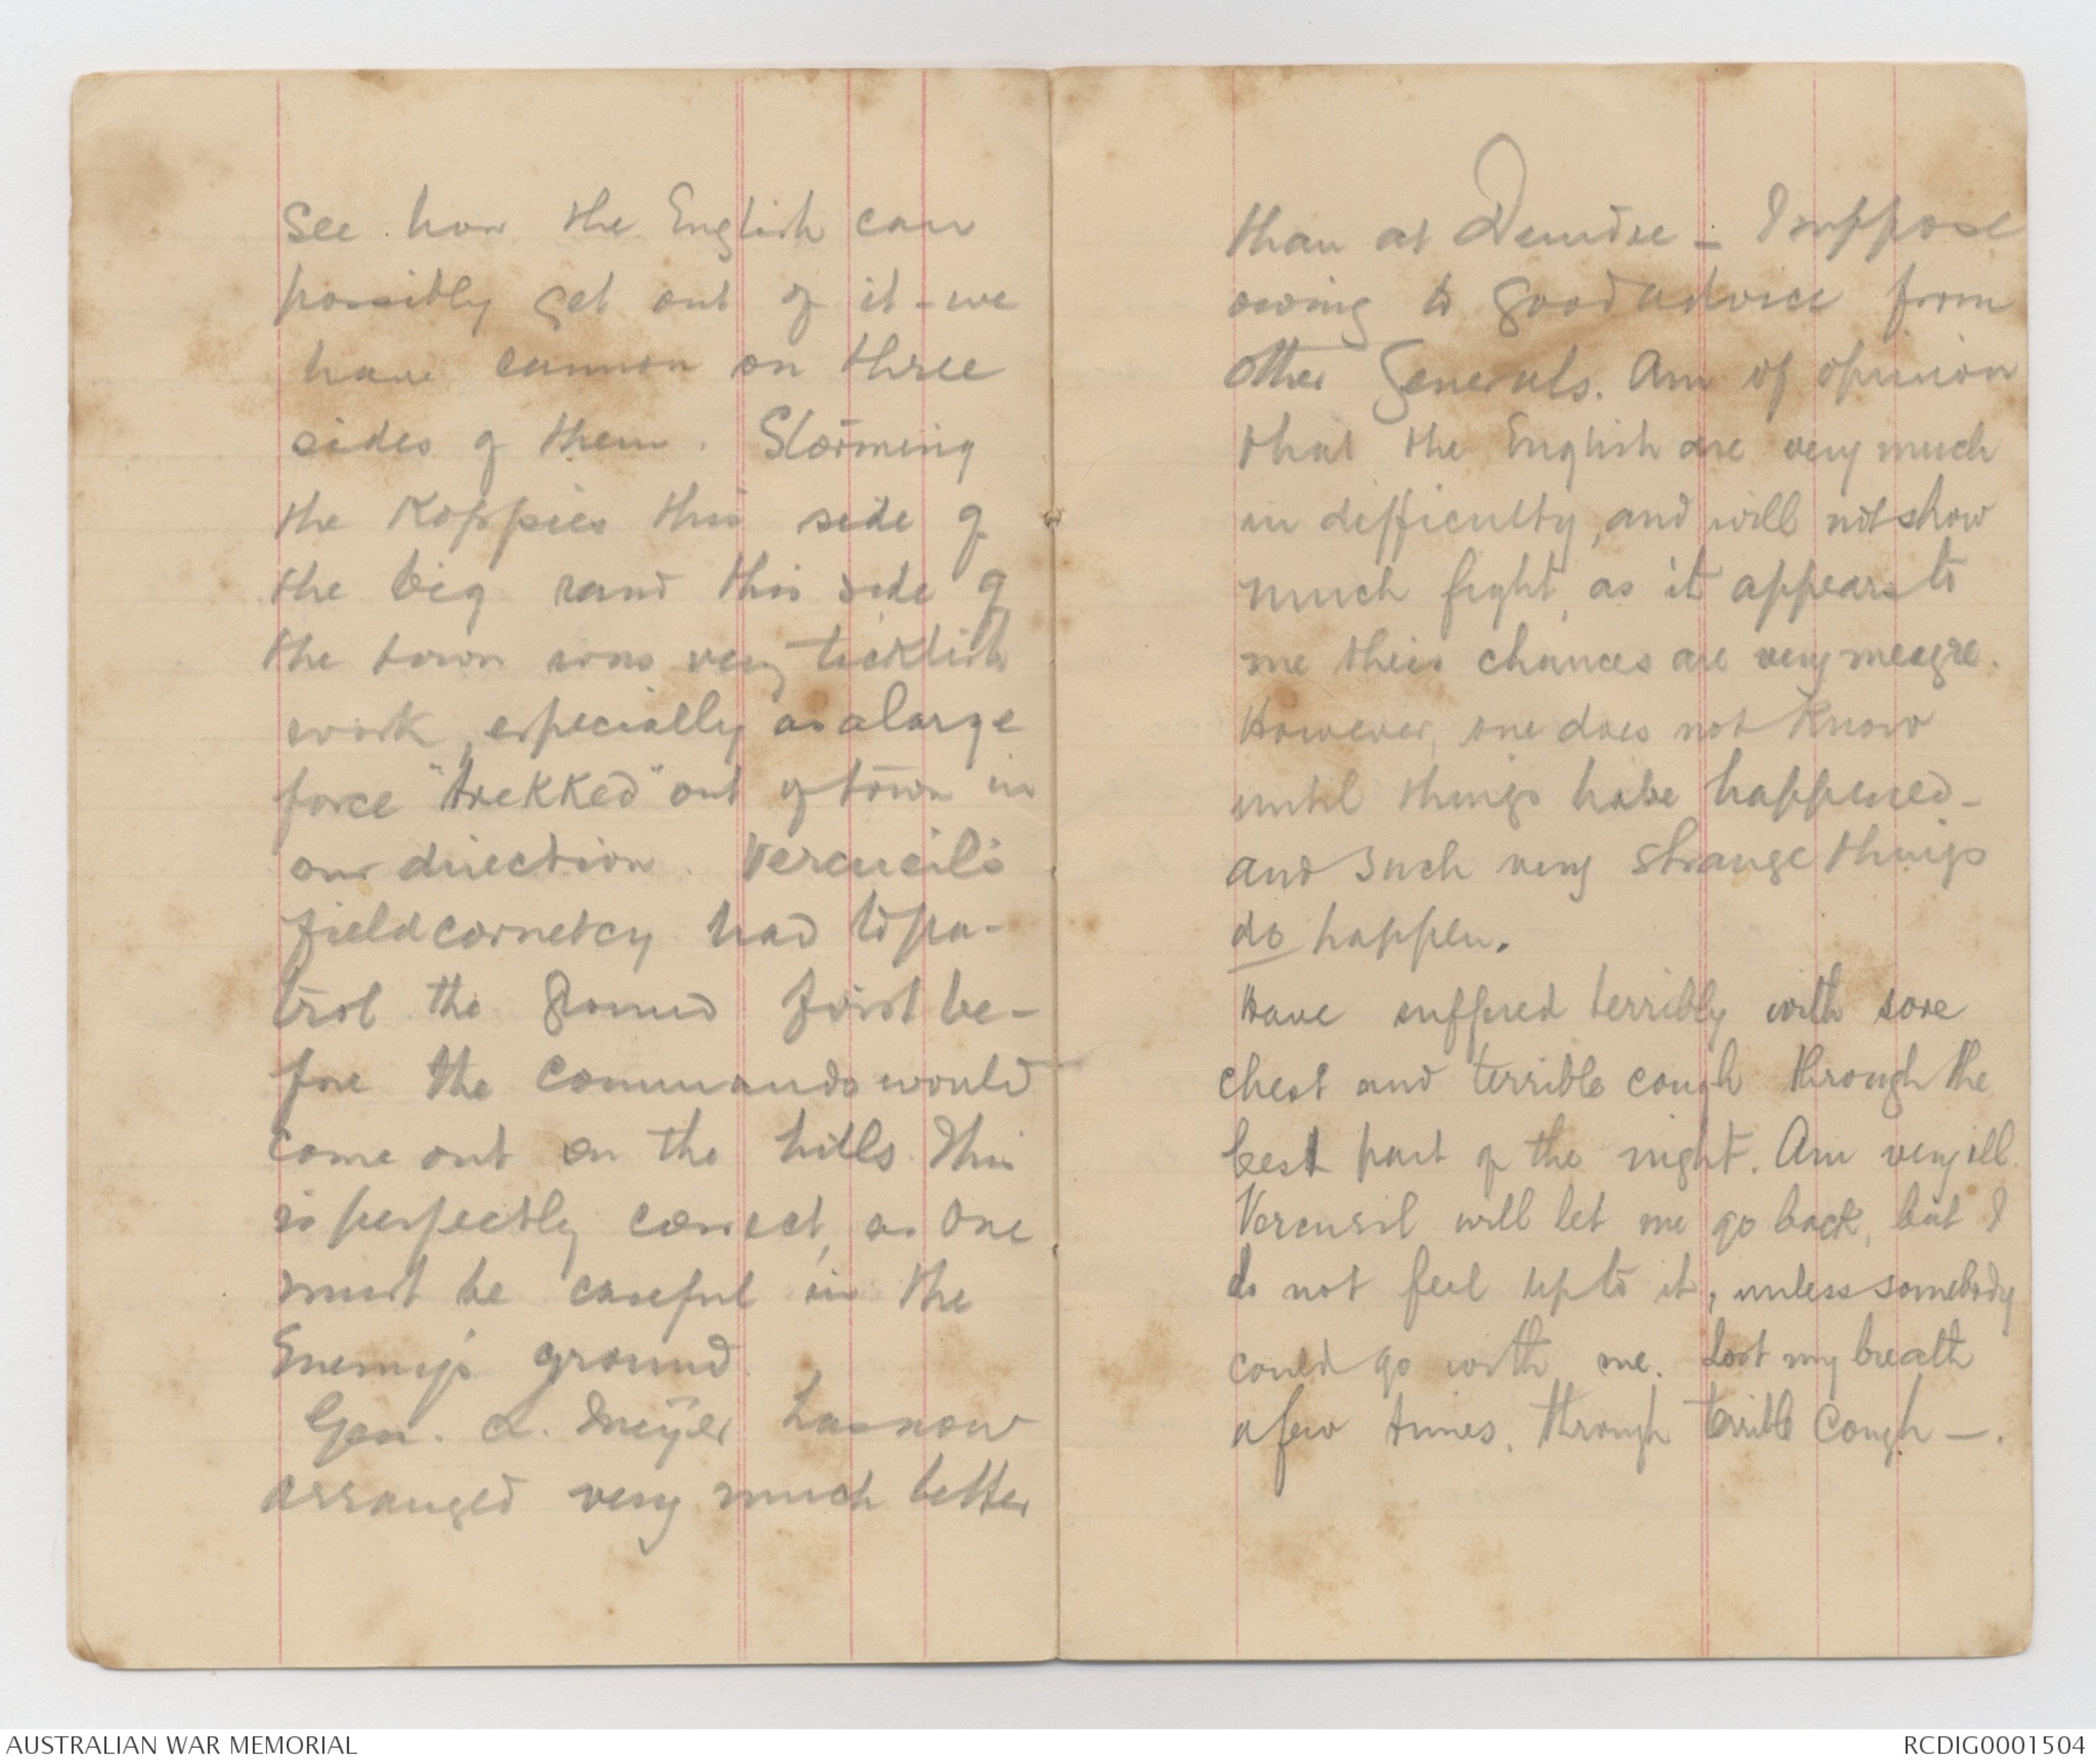 See how the English can
possibly get out of it - we
have cannon on three
sides of them. Storming
the Koppies this side of
the big rand this side of
the town was very ticklish
work, especially as a large
force "trekked" out of town in
our direction. Vercueil's
fieldcornetcy had to pa-
trol the ground first be-
fore the commando would
come out on the hills. This
is perfectly correct, as one
must be careful in the
Enemy's ground.
Gen. L. Meÿer has now
arranged very much better
than at Dundee - I suppose
owing to good advice from
other Generals. Am of opinion
that the English are very much
in difficulty, and will not show
much fight, as it appears to
me their chances are very meagre.
However, one does not know
until things have happened -
and such very strange things
do happen.
Have suffred terribly with sore
chest and terrible cough through the
best part of the night. Am very ill.
Vercueil will let me go back, but I
do not feel up to it, unless somebody
could go with me. Lost my breath
a few times, through terrible cough -.
AUSTRALIAN WAR MEMORIAL
RCDIG0001504